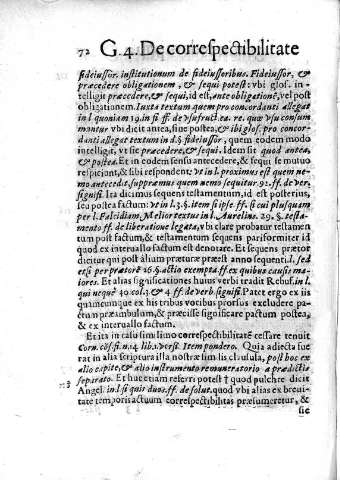 72 G. 4. De correspectibilitate
fideiussor. institutionum de fideiussoribus. Fideiussor, &
præcedere obligationem, & sequi potest: vbi glos. in-
telligit præcedere, & sequi, id est, ante obligationē, vel post
obligationem. Iuxta textum quem pro concordanti allegat
in l quoniam 19. in fi ff de vsufruct. ea. re. quæ vsu consum
montur vbi dicit antea, siue postea, & ibi glos. pro concor-
danti allegat textum in d. § fideiussor, quem eodem modo
intelligit, vt sie præcedere, & sequi. Idem sit quod antea,
& postea. Et in eodem sensu antecedere, & sequi se mutuo
respiciunt, & sibi respondent: vt in l. proximus est quem ne-
mo antecedit, supræmus quem nemo sequitur. 92. ff. de ver,
signifi. Ita dicimus sequens testamentum, id est posterius,
seu postea factum: vt in l. 3. §. item si ipse ff. si cui plusquam
per l. Falcidiam, Melior textus in l. Aurelius. 29. §. testa-
mento ff. de liberatione legata, vbi clare probatur testamen
tum post factum, & testamentum sequens pariformiter id
quod ex interuallo factum est denotare. Et sequens prætor
dicitur qui post alium prætura præest anno sequenti l. sed
etsi per prætorē 26. § actio exempta. ff ex quibus causis ma-
iores. Et alias significationes huius verbi tradit Rebuf. in l.
qui neque 40. col. 3 & 4 ff. de verb. signifi. Patet ergo ex iis
quamcunque ex his tribus vocibus prorsus excludere pa-
ctum præambulum, & præcise significare pactum postea,
& ex interuallo factum.
Et ita in casu simillimo correspectibilitatē cessare tenuit
Corn. cōs. fi. n. 14 lib. 1. versi. Item pondero. Quia adiecta fue
rat in alia scriptura illa nostræ similis clausula, post hoc ex
alio capite, & alio instrumento remuneratorio a prædictis
separato. Et huc etiam referri potest † quod pulchre dicit
Angel. in l si quis duos. ff de solut. quod vbi alias ex breui-
tate temporis actuum correspectibilitas præsumeretur, &
sic